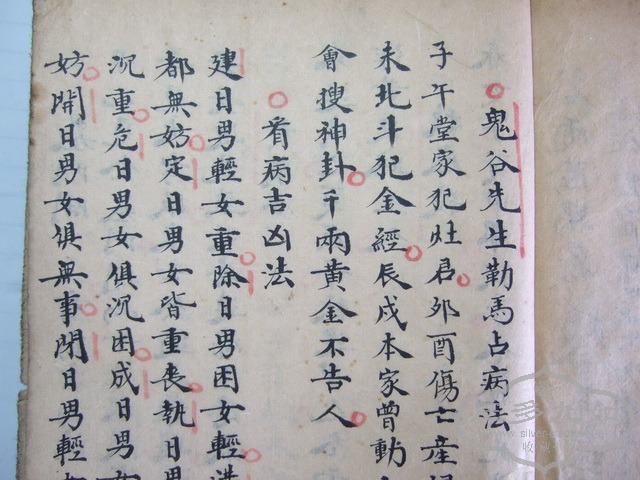 鬼谷先生勒馬占病法
子午堂家犯灶君卯酉傷亡產
未北斗犯金經辰戌本家曾動
會搜神卦千兩黃金不告人
看病吉凶法
建日男輕女重除日男困女輕
都無妨定日男女皆重喪執日
沉重危日男女俱沉困成日男
妨開日男女俱無事閉日男輕